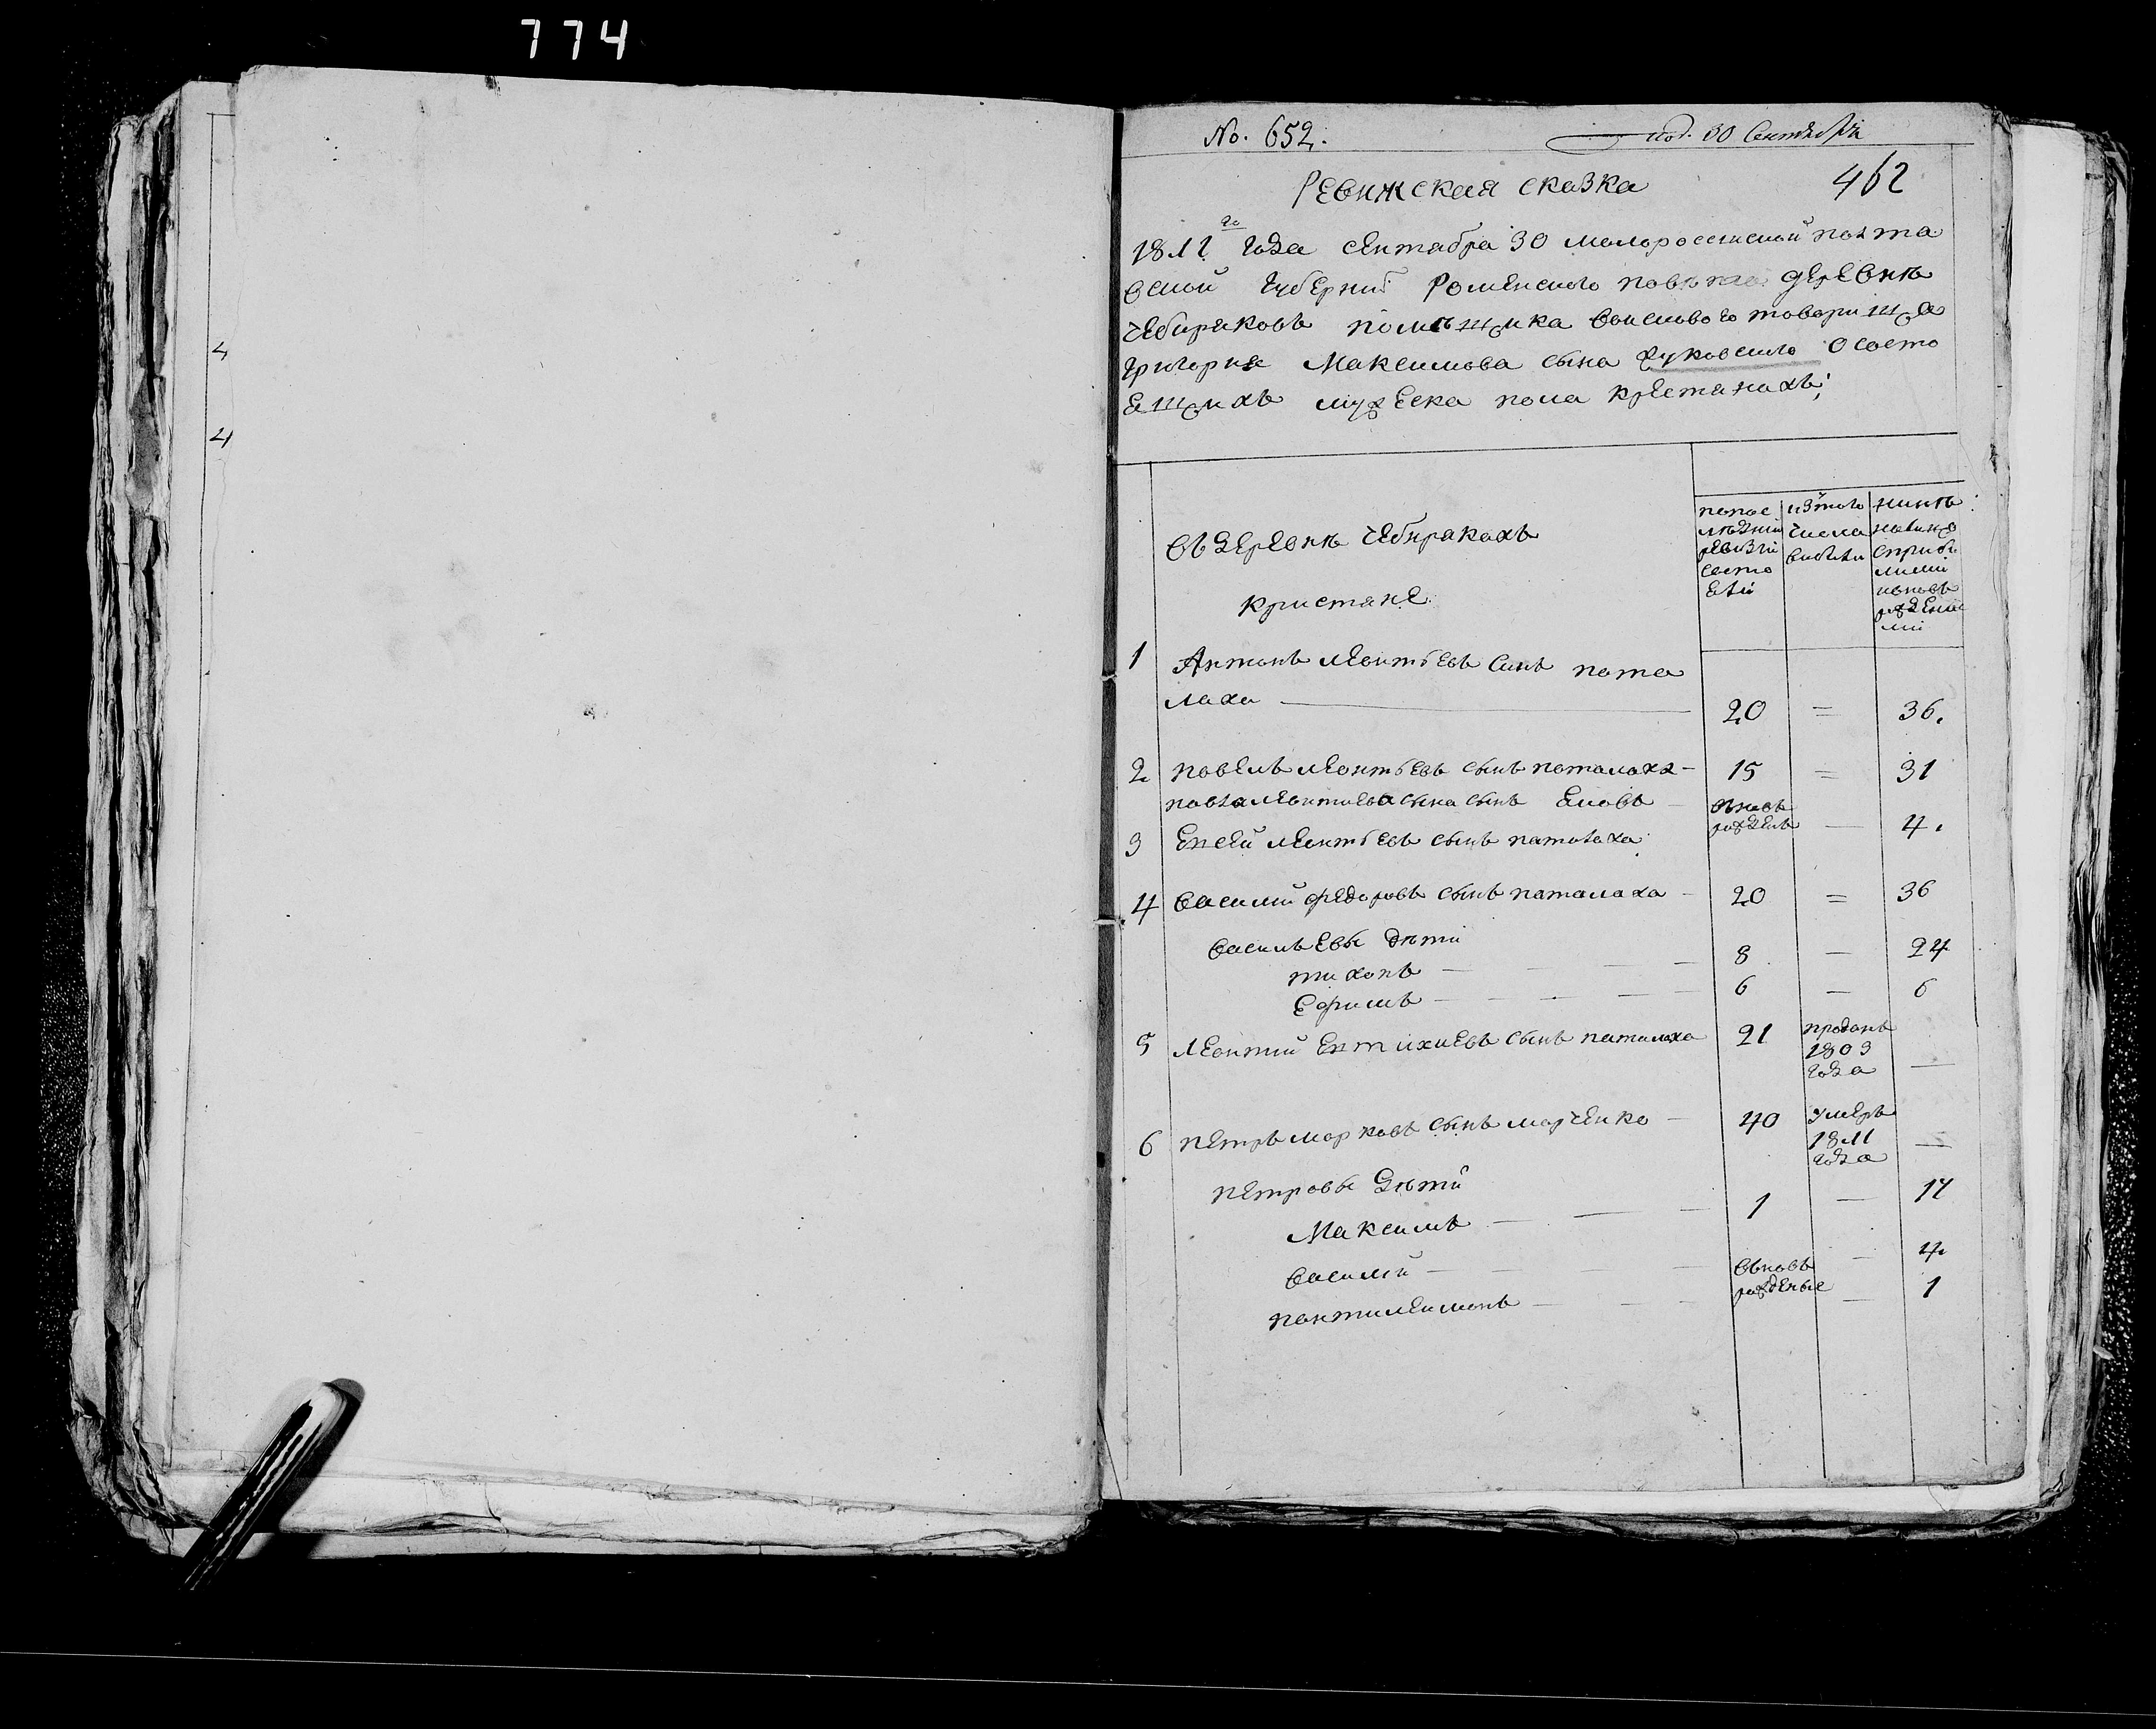 774
4
4
No. 652.
под. 30 Сентября
462
Ревижская сказка
1811 го года сентабра 30 малороссиской полта
вской губернии Роменского повета деревне
Чебиряковъ помѣщика войскового товарища
Григория Максимова сына Жуковского о состо
ещихъ мужеска пола крестянахъ;
въ деревнѣ Чебирякахъ
кристяне
по пос
лѣдней
ревизии
состо
ели
изъ того
числа
вибили
нинѣ
на лицо
с прибы
лими
и вновь
рожденни
ми
1 Антонъ Леонтьевъ синъ пота
лаха 20 = 36.
2 павелъ Леонтьевъ сынъ поталаха 15 = 31
павла Леонтиева сына сынъ Еловъ вновь рожденъ — 4.
3 Елсей Леонтьевъ сынъ паталаха
4 Василий Федоровъ сынъ паталаха 20 = 36
Васильевы дѣти
тихонъ 8 — 24
Ефимъ 6 — 6
5 Леонтий Евтихиевъ сынъ паталаха 21 проданъ
1803
года —
6 Петръ Марковъ сынъ Марченко 40 умеръ
1811
года —
Петровы дѣти
Максимъ 1 — 17
Василий вновь — 4
пантилимонъ рожденые — 1